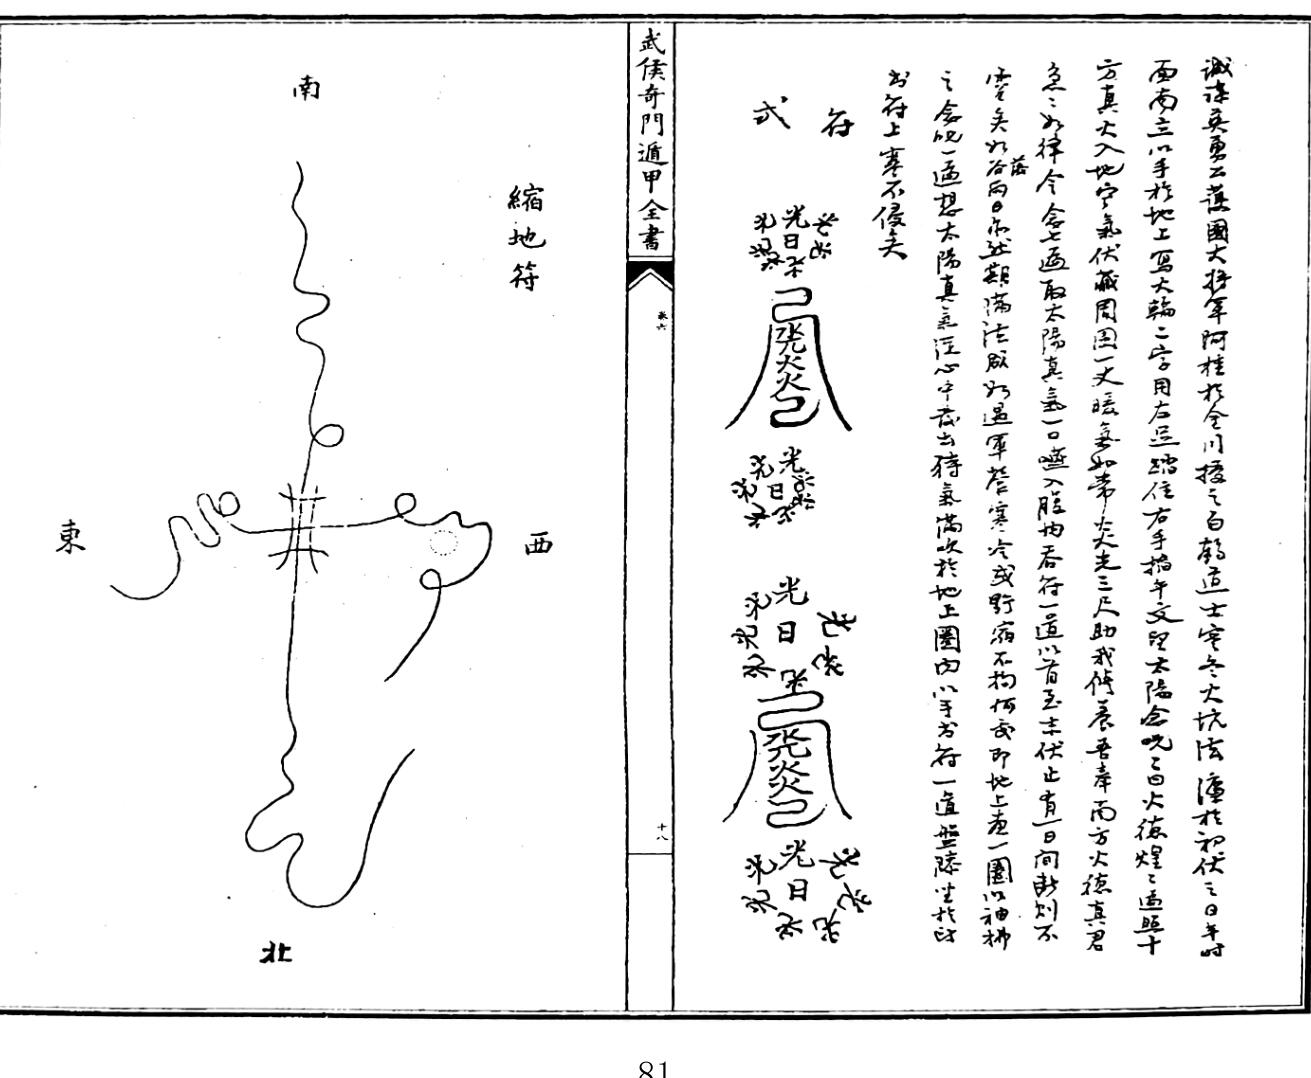 誠謀英勇公護國大將軍阿桂於金川援之白鶴道士寒冬火坑法濂於初伏之日午時
面南立以手於地上写火輪二字用左足踏住右手掐午文望太陽念呪三曰火德煌煌遍照十
方真火入地寒氣伏藏周圍一丈暖氣如常炎光三尺助我修養吾奉南方火德真君
急〻如律令念七遍取太陽真氣一口嚥入腹內吞符一道以首至末伏止有一日間斷則不
靈矣如谷落雨日亦然期滿法成如遇軍營寒冷或野宿不拘何處即地上畫一圈以袖拂
之念呪一遍想太陽真氣從心中發出待氣滿吹於地上圈內以手书符一道盤膝坐於
书符上寒不侵矣
符式
光
日
炎
火
光
日
光
日
炎
光
日
武侯奇門遁甲全書
卷六
十八
縮地符
南
東
西
北
81